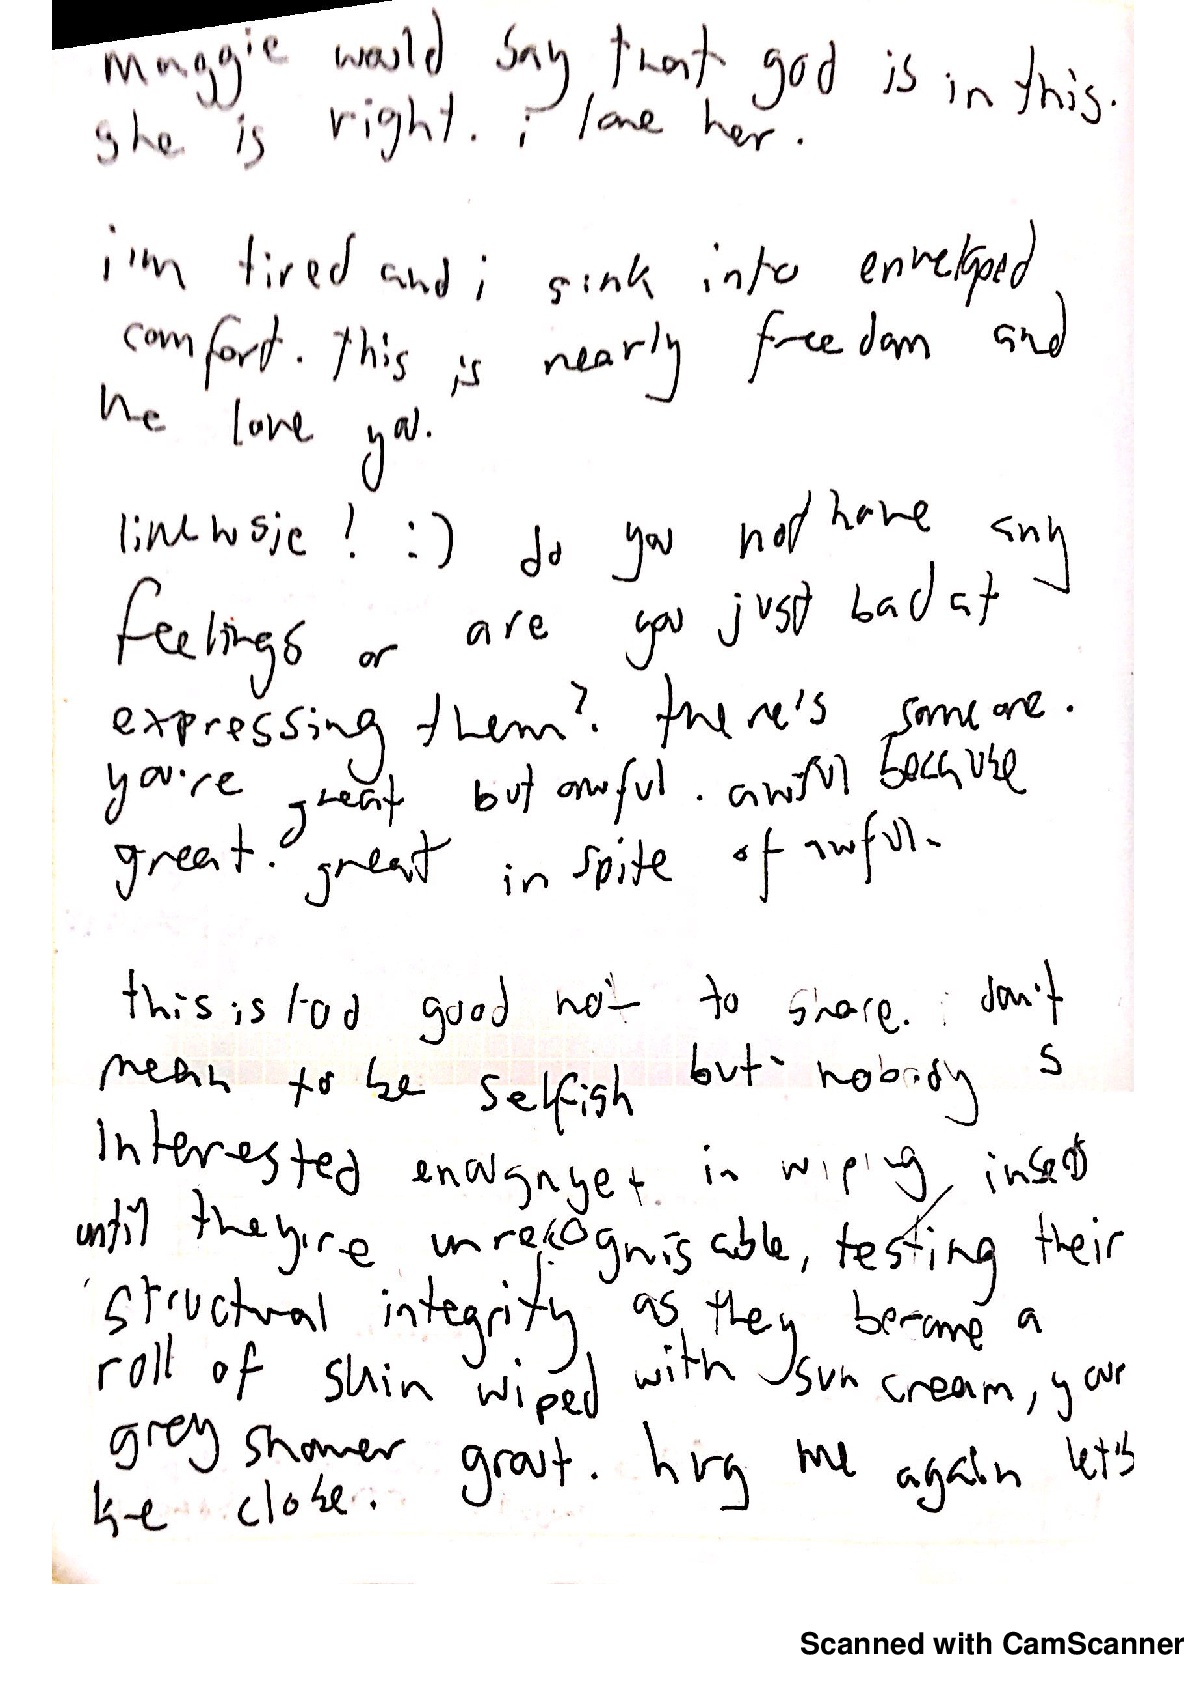 maggie would say that god is in this.
she is right. i love her.
i'm tired and i sink into enveloped
comfort. this is nearly freedom and
we love you.
! :) do you not have any
feelings or are you just bad at
expressing them?. there's someone.
you're great but awful. awful because
great. great in spite of awful.
this is too good not to share. i don't
mean to be selfish but nobody s
interested enough yet in wiping
until they're unrecognisable, testing their
structural integrity as they become a
roll of skin wiped with sun cream, your
grey shower grout. hug me again let's
be close.
Scanned with CamScanner